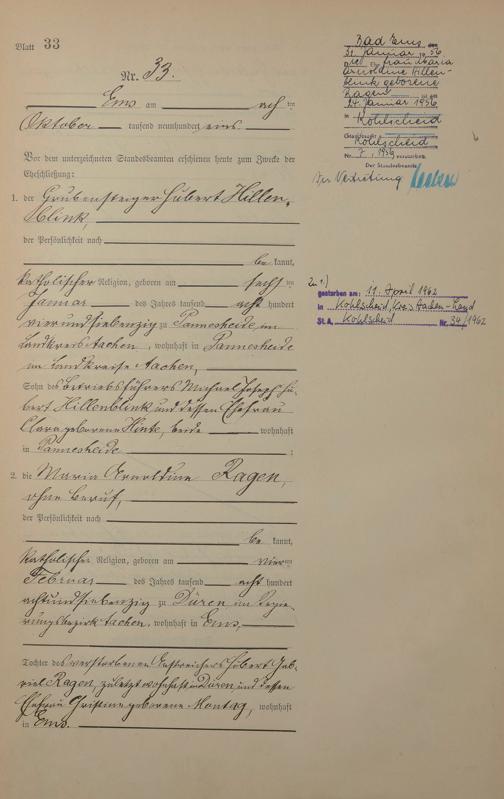 Blatt 33
Nr. 33.
Ems am acht ten
Oktober tausend neunhundert eins.
Vor dem unterzeichneten Standesbeamten erschienen heute zum Zwecke der
Eheschließung:
1. der Grubensteiger Hubert Hillen-
blink,
der Persönlichkeit nach
be kannt,
katholischer Religion, geboren am sechs ten
Januar des Jahres tausend acht hundert
vierundsiebenzig zu Pannesheide im
Landkreise Aachen, wohnhaft in Pannesheide
im Landkreise Aachen,
Sohn des Betriebsführers Michael Joseph Hu-
bert Hillenblink und dessen Ehefrau
Clara geborene Hinte, beide wohnhaft
in Pannesheide ;
2. die Maria Arnoldine Ragen,
ohne Beruf,
der Persönlichkeit nach
be kannt,
katholischer Religion, geboren am vier ten
Februar des Jahres tausend acht hundert
achtundsiebenzig zu Düren im Regie-
rungsbezirk Aachen, wohnhaft in Ems,
Tochter des verstorbenen Anstreichers Hubert Gab-
riel Ragen, zuletzt wohnhaft in Düren, und dessen
Ehefrau Christine geborene Montag, wohnhaft
in Ems.
Bad Ems den
31. Januar 1956
Die Ehefrau Maria
Arnoldine Hillen-
blink geborene
Ragen ist am
24. Januar 1956
in Kohlscheid
Kohlscheid
Nr. 7, 1956 verstorben.
Der Standesbeamte
In Vertretung
Zu 1)
gestorben am: 11. April 1962
in Kohlscheid, Krs. Aachen-Land
St.A. Kohlscheid Nr. 34/1962